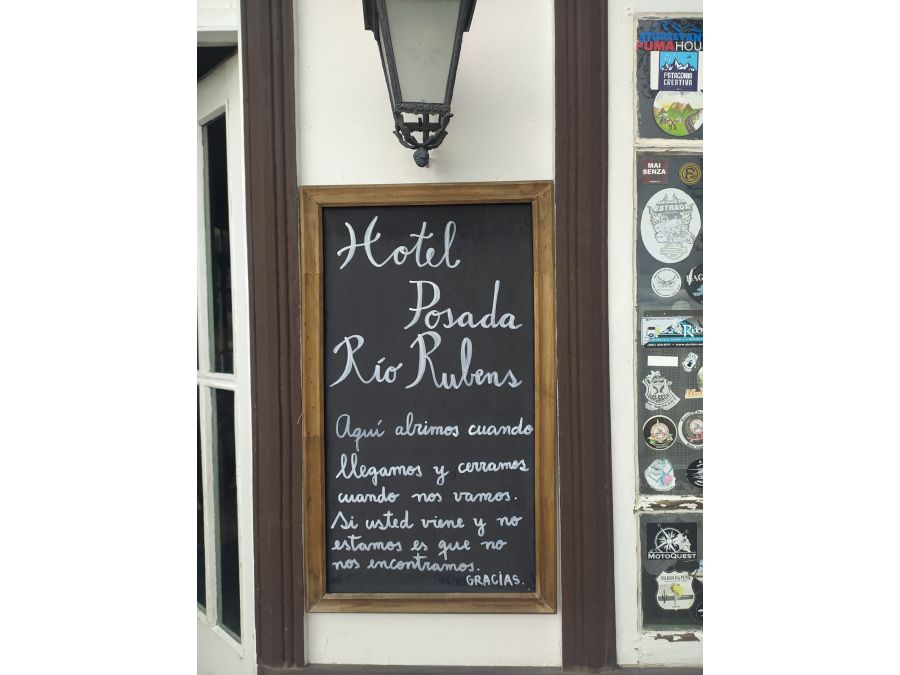 Hotel
Posada
Río Rubens
Aquí abrimos cuando
llegamos y cerramos
cuando nos vamos.
Si usted viene y no
estamos es que no
nos encontramos.
GRACIAS.
PUMA HOU
PATAGONIA
CREATIVA
MAI
SENZA
ESTRADA
MOTOQUEST